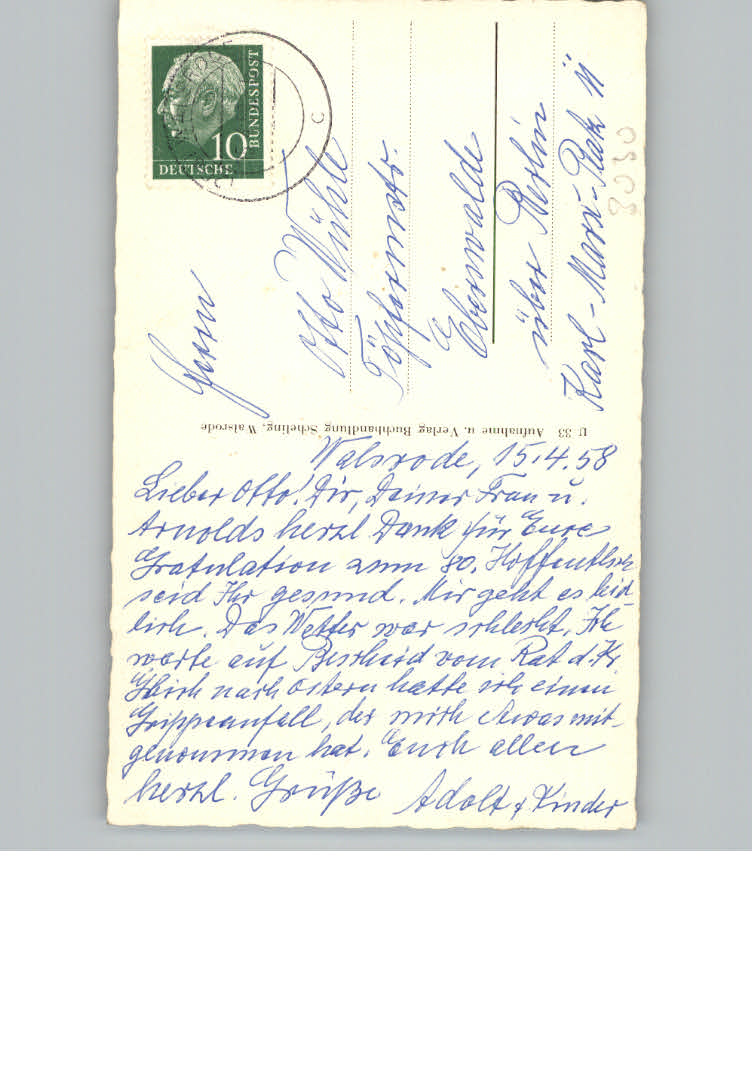 10
DEUTSCHE
BUNDESPOST
C
Herrn
Otto Wühle
Töpfermstr.
Eberswalde
über Berlin
Karl-Marx-Platz 11
3030
U 33 Aufnahme u. Verlag Buchhandlung Scheling, Walsrode
Walsrode, 15.4.58
Lieber Otto! Dir, Deiner Frau u.
Arnolds herzl Dank für Eure
Gratulation zum 80. Hoffentlich
seid Ihr gesund. Mir geht es leid
lich. Das Wetter war schlecht. Ich
warte auf Bescheid vom Rat d. Kr.
Gleich nach Ostern hatte ich einen
Grippeanfall, der mich etwas mit-
genommen hat. Euch allen
herzl. Grüße Adolf & Kinder